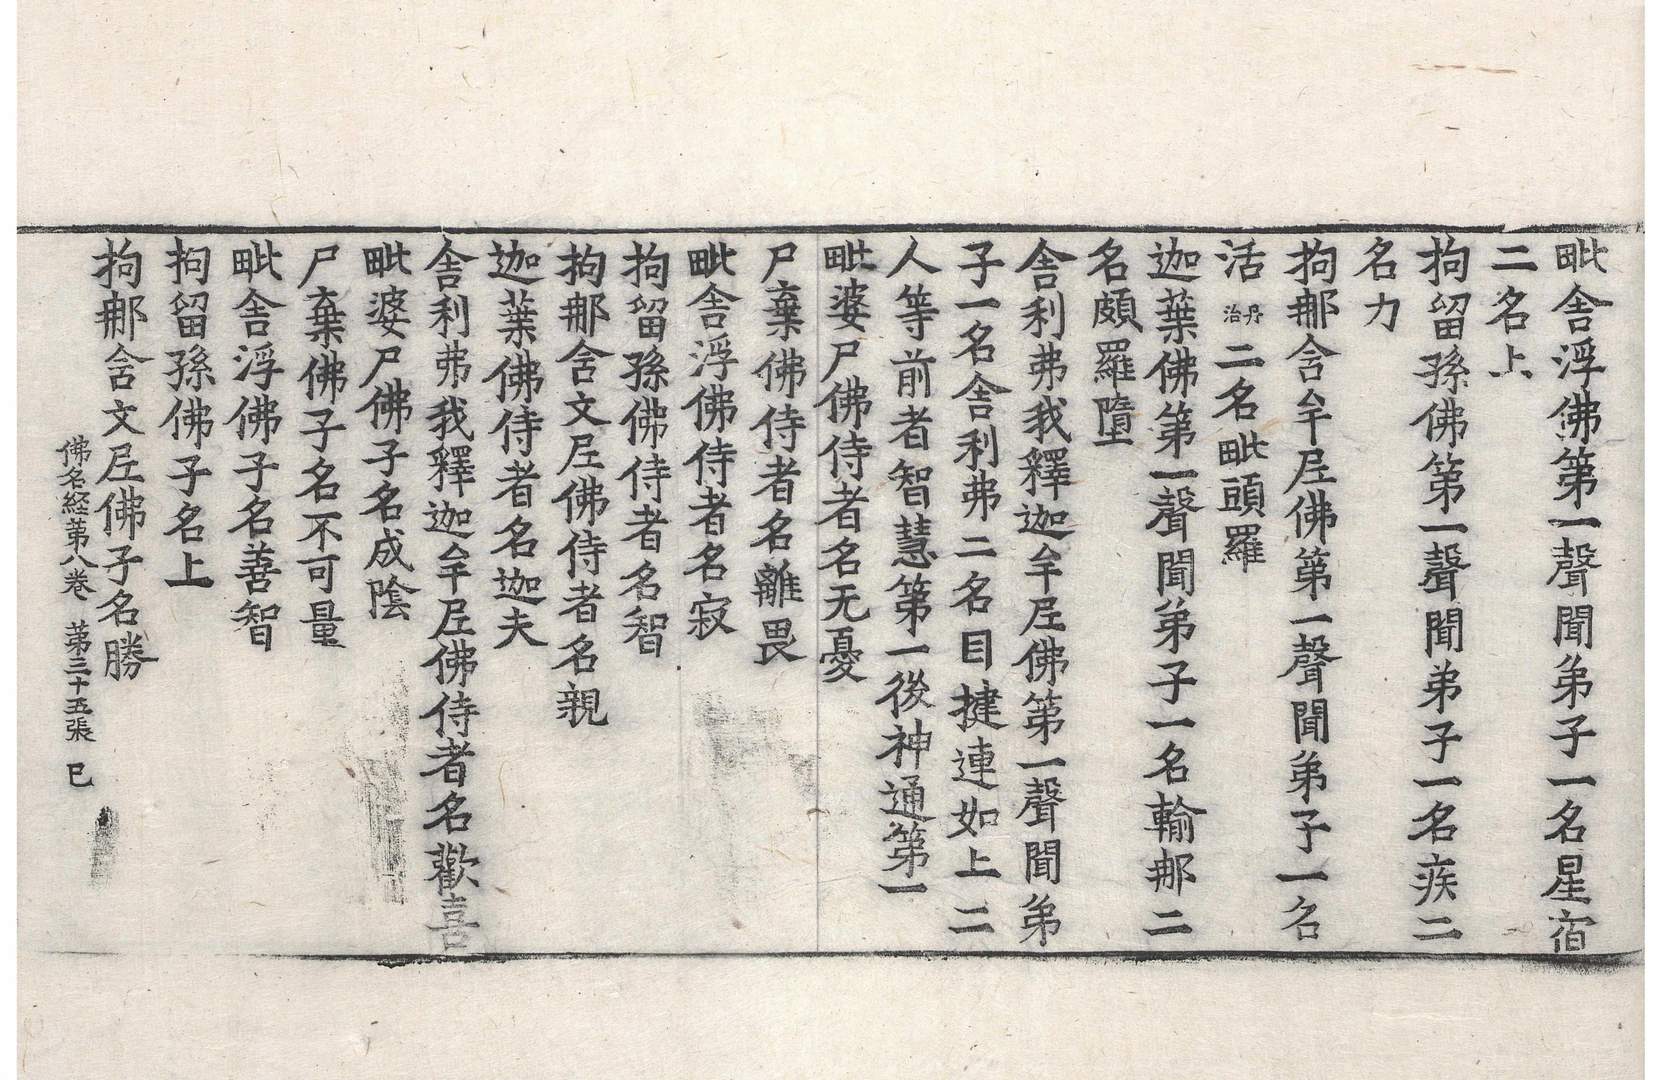 毗舎浮佛第一聲聞弟子一名星宿
二名上
拘留孫佛第一聲聞弟子一名疾二
名力
拘那含牟尼佛第一聲聞弟子一名
活丹治二名毗頭羅
迦葉佛第一聲聞弟子一名輸那二
名頗羅墮
舎利弗我釋迦牟尼佛第一聲聞弟
子一名舎利弗二名目揵連如上二
人等前者智慧第一後神通第一
毗婆尸佛侍者名无憂
尸棄佛侍者名離畏
毗舎浮佛侍者名寂
拘留孫佛侍者名智
拘那含文尼佛侍者名親
迦葉佛侍者名迦夫
舎利弗我釋迦牟尼佛侍者名歡喜
毗婆尸佛子名成陰
尸棄佛子名不可量
毗舎浮佛子名善智
拘留孫佛子名上
拘那含文尼佛子名勝
佛名経第八卷 第三十五張 巳